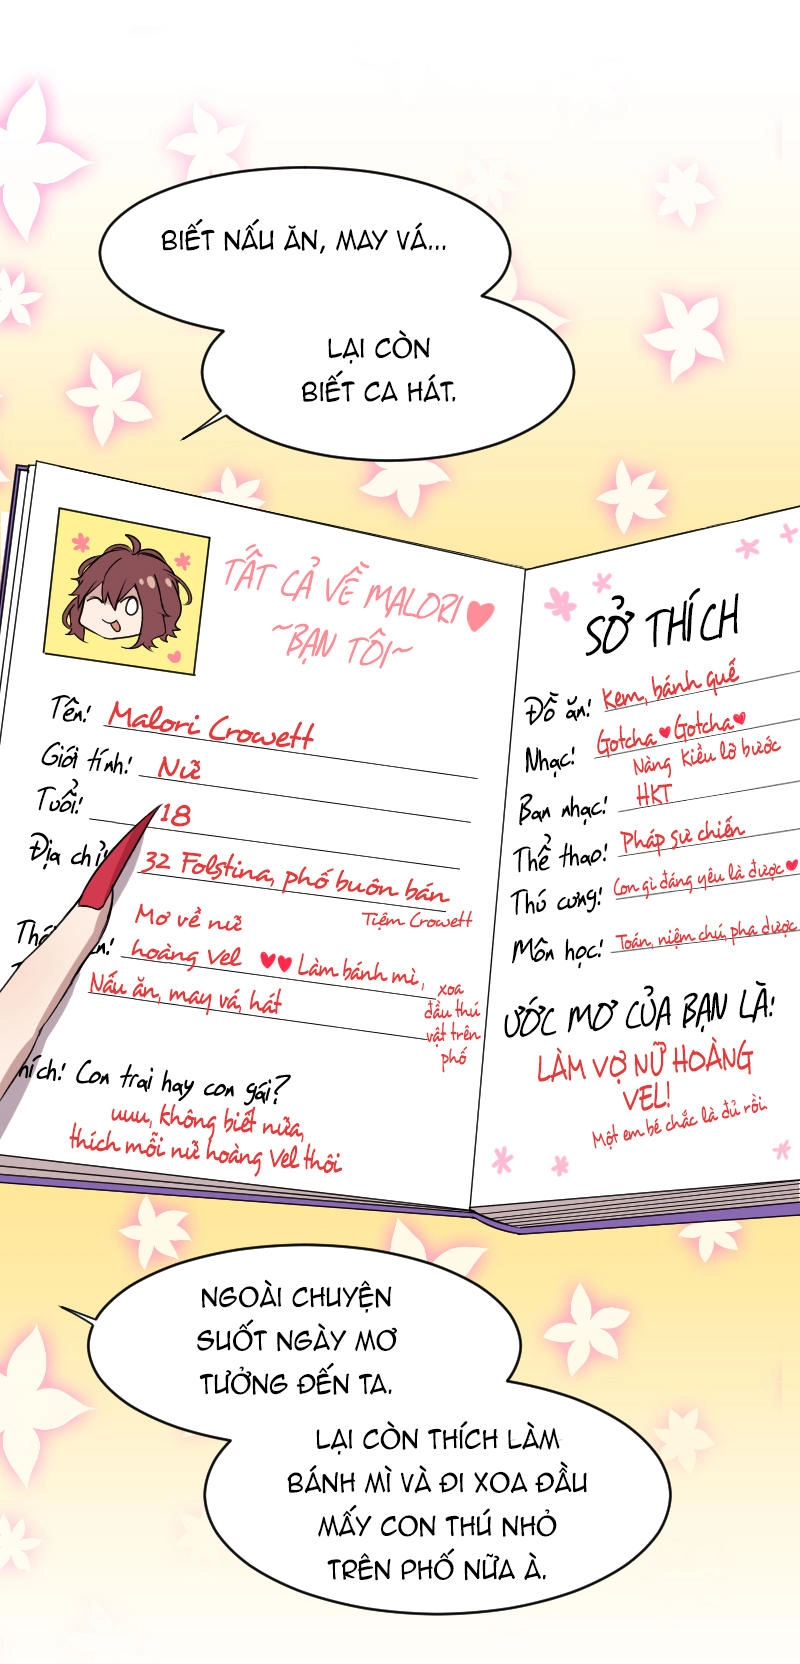 BIẾT NẤU ĂN, MAY VÁ...
LẠI CÒN
BIẾT CA HÁT.
TẤT CẢ VỀ MALORI
~BẠN TÔI~
Tên: Malori Crowett
Giới tính: Nữ
Tuổi: 18
Địa chỉ 32 Folstina, phố buôn bán
Tiệm Crowett
Mơ về nữ
hoàng Vel ♥♥ Làm bánh mì,
xoa
đầu thú
vật trên
phố
Nấu ăn, may vá, hát
hích: Con trai hay con gái?
uuu, không biết nữa,
thích mỗi nữ hoàng Vel thôi
SỞ THÍCH
Đồ ăn: Kem, bánh quế
Nhạc: Gotcha♥Gotcha♥
Nàng Kiều lỡ bước
Ban nhạc: HKT
Thể thao: Pháp sư chiến
Thú cưng: Con gì đáng yêu là được♥
Môn học: Toán, niệm chú, pha dược
ƯỚC MƠ CỦA BẠN LÀ:
LÀM VỢ NỮ HOÀNG
VEL!
Một em bé chắc là đủ rồi.
NGOÀI CHUYỆN
SUỐT NGÀY MƠ
TƯỞNG ĐẾN TA.
LẠI CÒN THÍCH LÀM
BÁNH MÌ VÀ ĐI XOA ĐẦU
MẤY CON THÚ NHỎ
TRÊN PHỐ NỮA À.